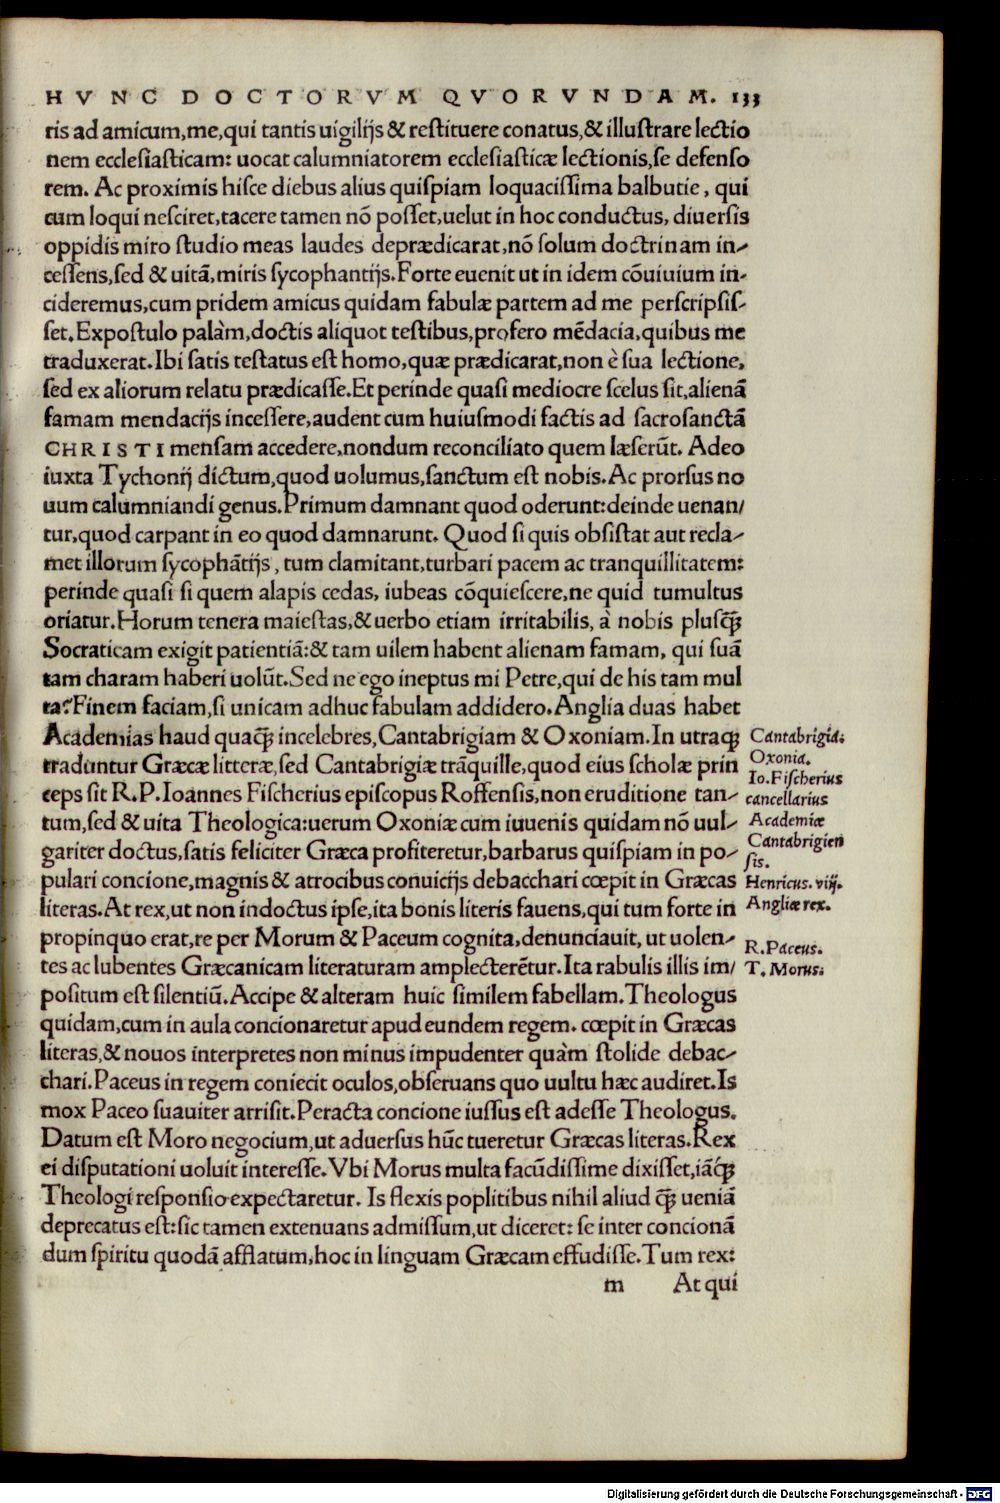 HVNC DOCTORVM QVORVNDAM. 133
ris ad amicum,me,qui tantis uigilijs & restituere conatus,& illustrare lectio
nem ecclesiasticam: uocat calumniatorem ecclesiasticæ lectionis,se defenso
rem. Ac proximis hisce diebus alius quispiam loquacissima balbutie, qui
cum loqui nesciret,tacere tamen nõ posset,uelut in hoc conductus, diuersis
oppidis miro studio meas laudes deprædicarat,nõ solum doctrinam in-
cessens,sed & uitã,miris sycophantijs.Forte euenit ut in idem cõuiuium in-
cideremus,cum pridem amicus quidam fabulæ partem ad me perscripsis-
set.Expostulo palàm,doctis aliquot testibus,profero mẽdacia,quibus me
traduxerat.Ibi satis testatus est homo,quæ prædicarat,non è sua lectione,
sed ex aliorum relatu prædicasse.Et perinde quasi mediocre scelus sit,alienã
famam mendacijs incessere,audent cum huiusmodi factis ad sacrosanctã
CHRISTI mensam accedere,nondum reconciliato quem læserũt. Adeo
iuxta Tychonij dictum,quod uolumus,sanctum est nobis.Ac prorsus no
uum calumniandi genus.Primum damnant quod oderunt:deinde uenan/
tur,quod carpant in eo quod damnarunt. Quod si quis obsistat aut recla-
met illorum sycophãtijs, tum clamitant,turbari pacem ac tranquillitatem:
perinde quasi si quem alapis cedas, iubeas cõquiescere,ne quid tumultus
oriatur.Horum tenera maiestas,&uerbo etiam irritabilis, à nobis plusꝗ̃
Socraticam exigit patientiã:& tam uilem habent alienam famam, qui suã
tam charam haberi uolũt.Sed ne ego ineptus mi Petre,qui de his tam mul
ta?Finem faciam,si unicam adhuc fabulam addidero.Anglia duas habet
Academias haud quaꝗ̃ incelebres,Cantabrigiam & Oxoniam.In utraꝗ
traduntur Græcæ litteræ,sed Cantabrigiæ trãquille,quod eius scholæ prin
ceps sit R.P.Ioannes Fischerius episcopus Roffensis,non eruditione tan-
tum,sed & uita Theologica:uerum Oxoniæ cum iuuenis quidam nõ uul-
gariter doctus,satis feliciter Græca profiteretur,barbarus quispiam in po-
pulari concione,magnis & atrocibus conuicijs debacchari cœpit in Græcas
literas.At rex,ut non indoctus ipse,ita bonis literis fauens,qui tum forte in
propinquo erat,re per Morum & Paceum cognita,denunciauit, ut uolen-
tes ac lubentes Græcanicam literaturam amplecterẽtur.Ita rabulis illis im/
positum est silentiũ.Accipe & alteram huic similem fabellam.Theologus
quidam,cum in aula concionaretur apud eundem regem. cœpit in Græcas
literas,& nouos interpretes non minus impudenter quàm stolide debac-
chari.Paceus in regem coniecit oculos,obseruans quo uultu hæc audiret.Is
mox Paceo suauiter arrisit.Peracta concione iussus est adesse Theologus.
Datum est Moro negocium,ut aduersus hũc tueretur Græcas literas.Rex
ei disputationi uoluit interesse.Vbi Morus multa facũdissime dixisset,iãꝗ̃
Theologi responsio expectaretur. Is flexis poplitibus nihil aliud ꝗ̃ ueniã
deprecatus est:sic tamen extenuans admissum,ut diceret: se inter concionã
dum spiritu quodã afflatum,hoc in linguam Græcam effudisse.Tum rex:
m At qui
Cantabrigia.
Oxonia.
Io.Fischerius
cancellarius
Academiæ
Cantabrigien
sis.
Henricus.viij.
Angliæ rex.
R.Paceus.
T. Morus.
Digitalisierung gefördert durch die Deutsche Forschungsgemeinschaft - DFG